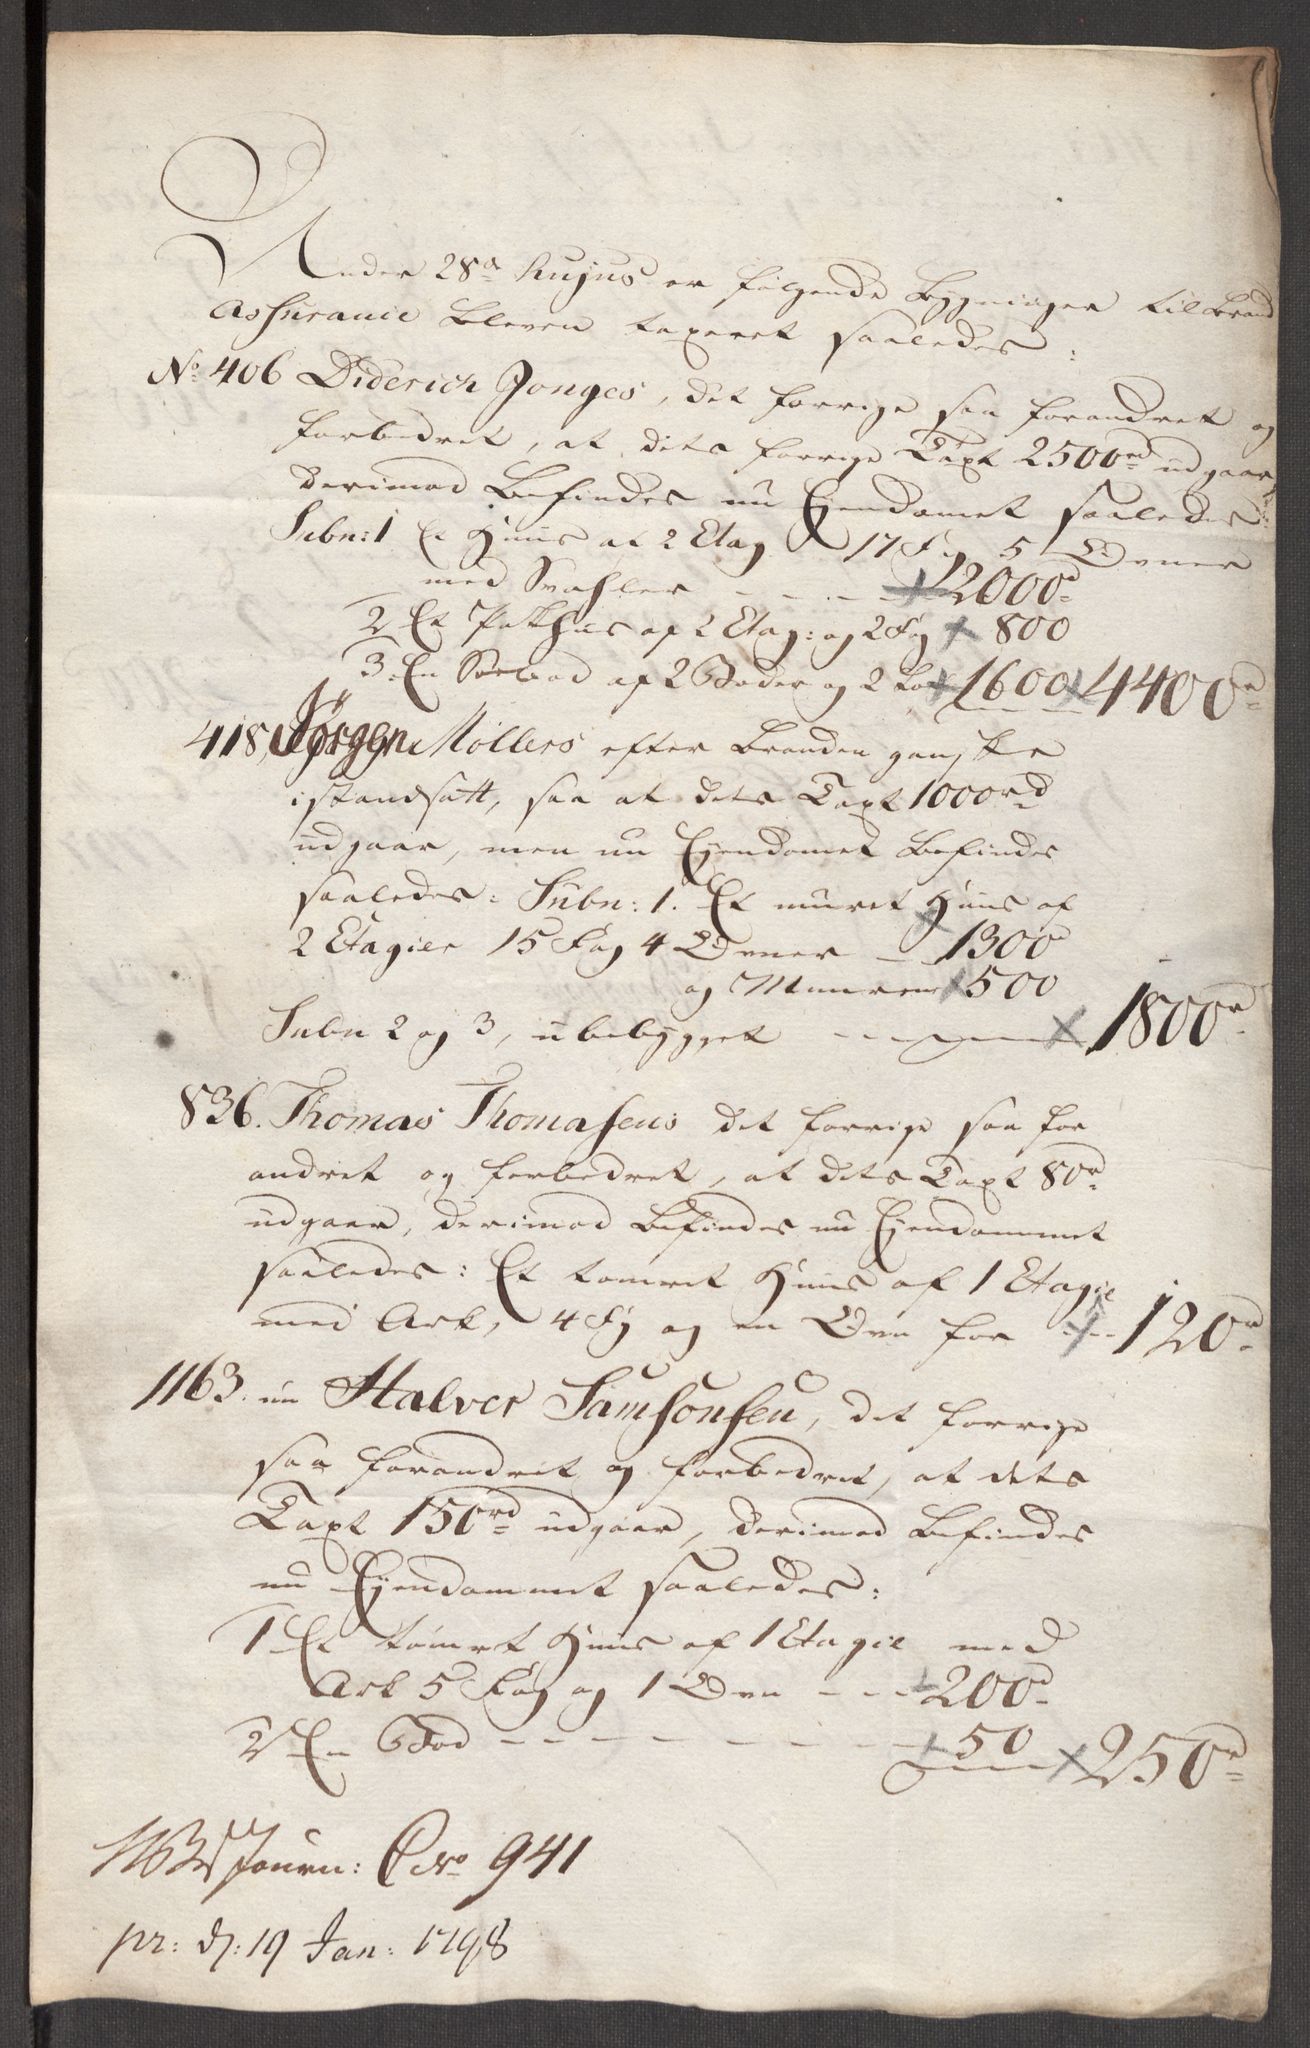 Under 28de hujus er følgende Bygninger til Brand
Assurance bleven taxeret saaledes:
No 406 Diderich Jonges, det forrige saa forandret og
forbedret, at dets forrige Taxt 2500rd udgaar,
derimod befindes nu Ejendomet saaledes
Subn: 1 Et Huus af 2 Etag 17 Fag 5 Ovner
med Svahler - - - 2000rd
2 Et Pakhus af 2 Etag: og 2 Fag 800
3. En Søebod af 2 Boder og 2 1600 4400rd
418, Jørgen Møllers efter Branden ganske
istandsatt, saa at dets Taxt 1000rd
udgaar, men nu Ejendomet befindes
saaledes: Subn: 1. Et muret Huus af
2 Etagier 15 Fag 4 Ovner - 1300rd
og Muuren 500
Subn 2 og 3, ubebygget - - - 1800rd
836. Thomas Thomasens det forrige saa for
andret og forbedret, at dets Taxt 80rd
udgaar, derimod befindes nu Ejendommet
saaledes: Et tømret Huus af 1 Etagie
med Ark, 4 Fag og en Ovn for - - 120rd
1163. nu Halver Samsonsen, det forrige
saa forandret og forbedret, at dets
Taxt 150rd udgaar, derimod befindes
nu Ejendommet saaledes:
1 Et tømret Huus af 1 Etagie med
Ark 5 Fag og 1 Ovn - - - 200rd
2 En Bod - - - - - - 50 250rd
Journ: C No 941
pr: d: 19 Jan: 1798